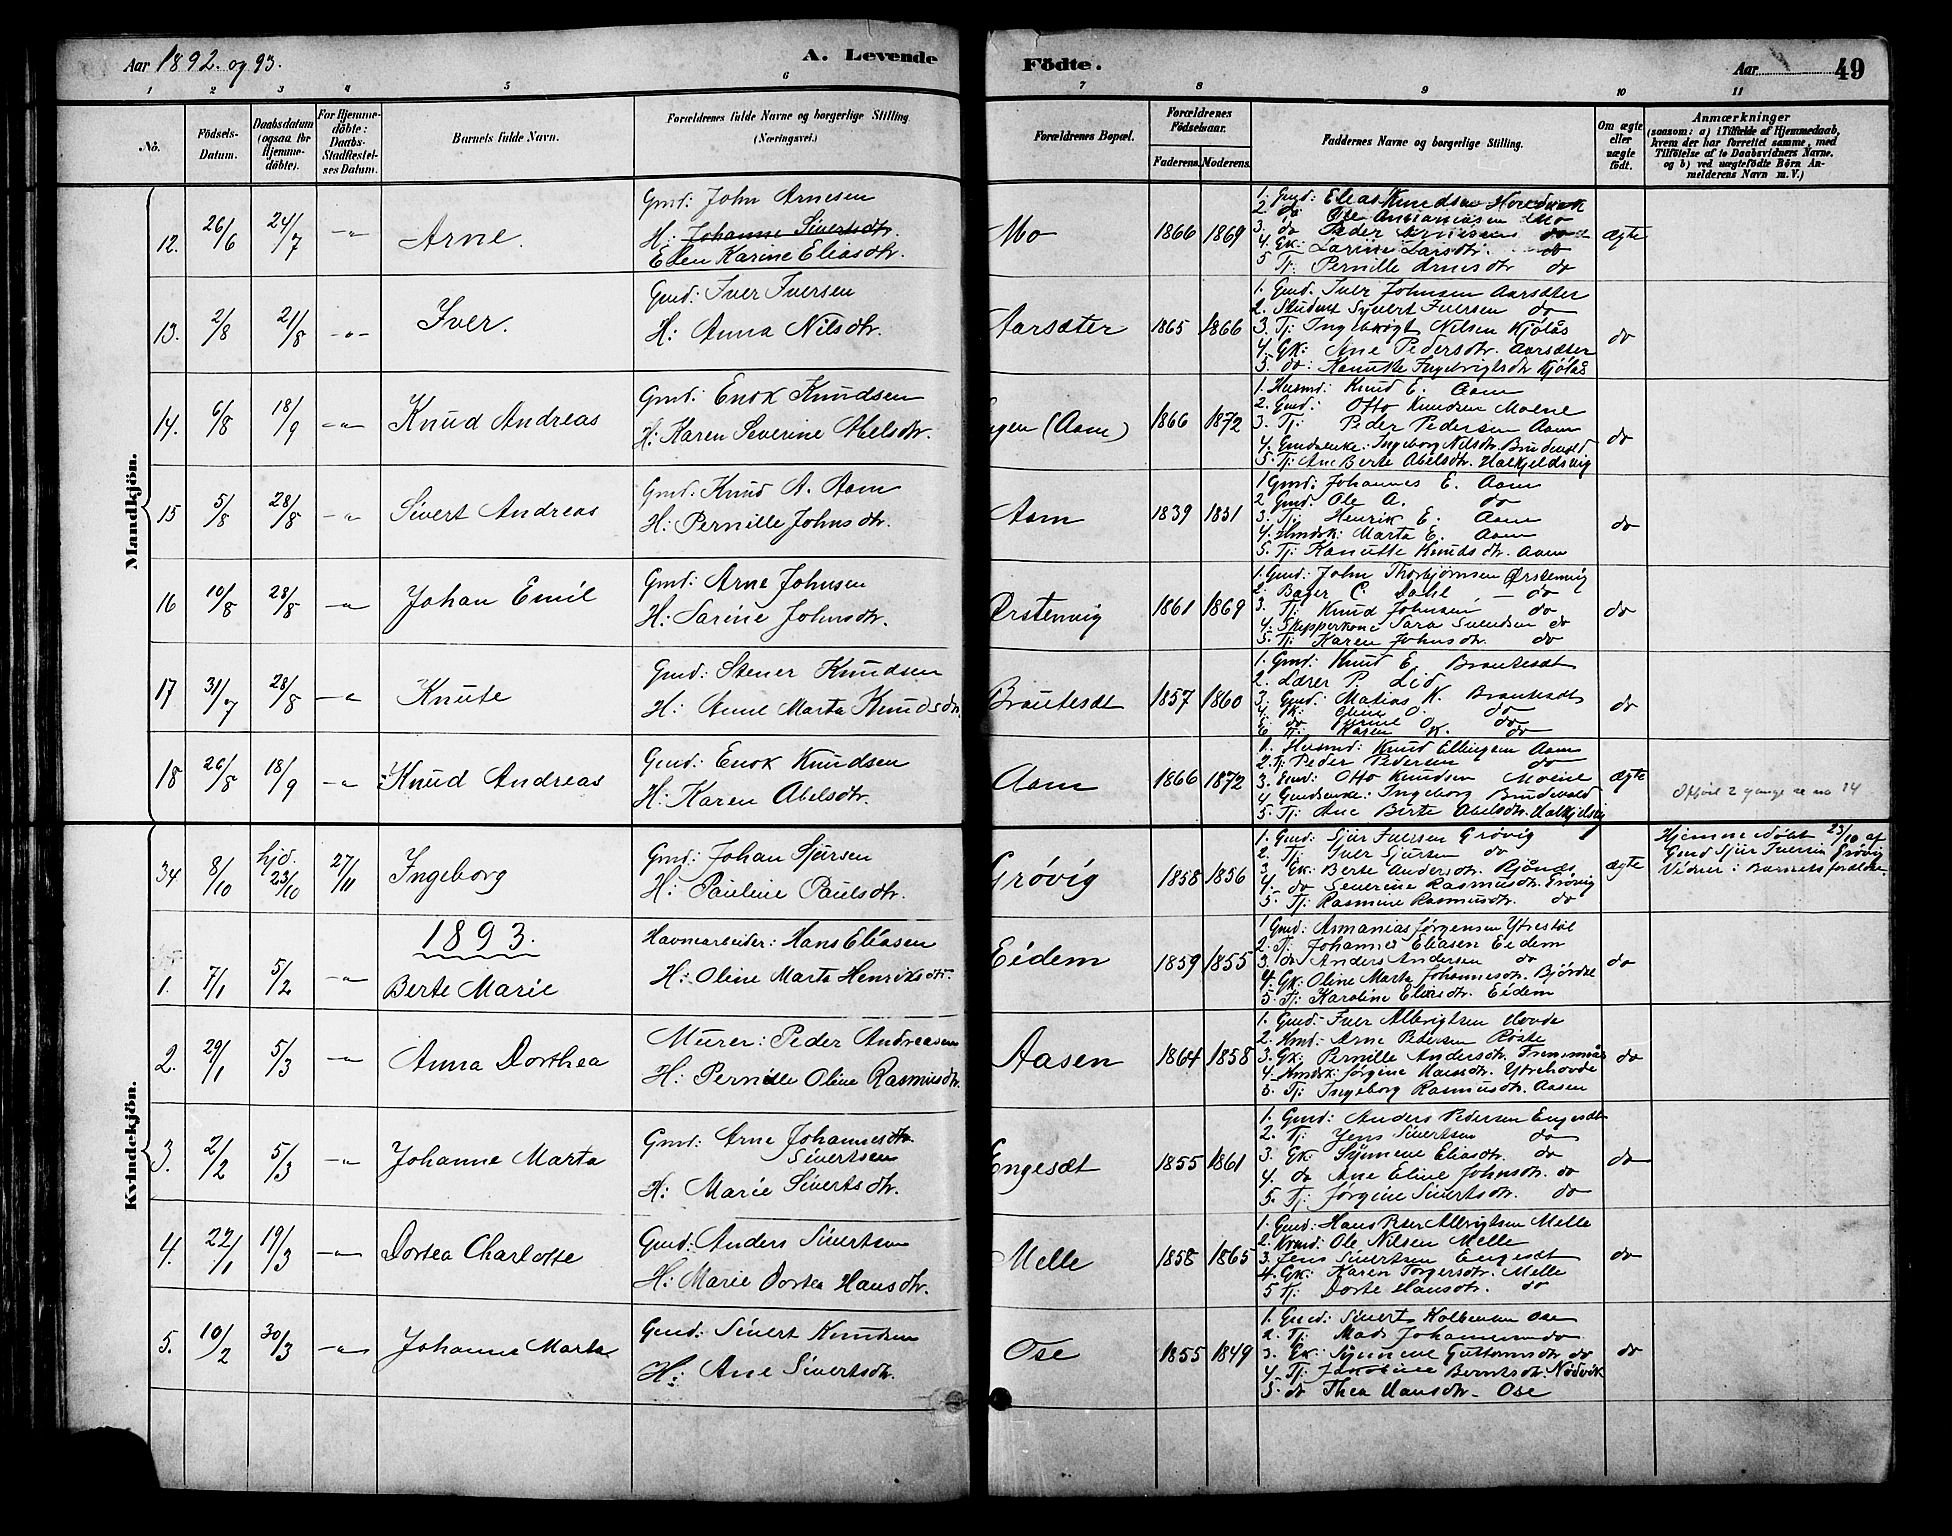 Aar 1892. og 93.
A. Levende
Födte.
Aar
49
1 2 3 4 5 6 7 8 9 10 11
No.
Födsels-
Datum.
Daabsdatum
(ogsaa for
Hjemme-
döbte).
For Hjemme-
döbte:
Daabs-
Stadfæstel-
ses Datum.
Barnets fulde Navn.
Forældrenes fulde Navne og borgerlige Stilling
(Næringsvei.)
Forældrenes Bopæl.
Forældrenes
Födselsaar.
Faderens. Moderens.
Faddernes Navne og borgerlige Stilling.
Om ægte
eller
uægte
födt.
Anmærkninger
(saasom: a) i Tilfælde af Hjemmedaab,
hvem der har forrettet samme, med
Tilföielse af to Daabsvidners Navne.
og b) ved uægtefödte Börn An-
melderens Navn m. V.)
Mandkjön.
12. 26/6 24/7 -"- Arne.
Gmd: John Arnesen
H: Johanne Sivertsdtr.
Elen Karine Eliasdtr.
Mo 1866 1869
1. Gmd: Elias Knudsen
2. do Ole Mo
3. do Peder do
4. Gk: Larsdtr. do
5 Tj: Pernille Arnesdtr do
ægte
13. 2/8 21/8 -"- Iver.
Gmd: Iver Iversen
H: Anna Nilsdtr.
Aarsæter 1865 1866
1. Gmd. Iver Johnsen Aarsæter
2. Student Syvert Iversen do
3. Tj: Ingebrigt Nilsen Kjölås
4. Gk: Ane Pedersdtr. Aarsæter
5. do: Kanutte Ingebrigtsdtr Kjölås
do
14. 6/8 18/9 -"- Knud Andreas
Gmd: Enok Knudsen
H: Karen Severine Abelsdtr.
(Aam) 1866 1872
1. Husmd: Knud E. Aam
2. Gmd: Otto Knudsen Moene
3. Tj: Peder Pedersen Aam
4. Gmdsenke: Ingeborg Nilsdtr. Brudevold
5. Tj: Ane Berte Abelsdtr. Halkjeldsvig
do
15 5/8 28/8 -"- Sivert Andreas
Gmd: Knud A. Aam
H: Pernille Johnsdtr.
Aam 1839 1851
1 Gmd: Johannes E. Aam
2 Gmd. Ole A. do
3. Tj: Henrik E. Aam
4. Hmdsk: Marta E. Aam
5. Tj: Kanutte Knudsdtr. Aam
do
16 10/8 28/8 -"- Johan Emil
Gmd: Arne Johnsen
H: Sarine Johnsdtr.
Ørstenvig 1861 1869
1. Gmd: John Thorbjørnsen Ørstenvig
2. Bager C. Dahl - do
3. Tj: Knud Johnsen do
4. Skipperkone Sara Svendsen do
5. Tj: Karen Johnsdtr. do
do
17 31/7 28/8 -"- Knute
Gmd: Stener Knudsen
H: Anne Marta Knudsdtr.
Brautesæt 1857 1860
1. Gmd: Knud E. Brautesæt
2. Lærer P. Lid
3. Gmd: Matias K. Brautesæt
4. Gk: Oline O. do
do O. do
Tj: Karen K. do
do
18 26/8 18/9 -"- Knud Andreas
Gmd: Enok Knudsen
H: Karen Abelsdtr.
Aam 1866 1872
1. Husmd: Knud Ellingsen Aam
2. Tj: Peder Pedersen do
3. Gmd: Otto Knudsen Moene
4. Gmdsenke: Ingeborg Brudevold
5. Tj: Ane Berte Abelsdtr. Halkjelsvig
ægte
2 gange se no 14
Kvindekjön.
34 8/10 hjd. 23/10 27/11 Ingeborg
Gmd: Johan Sjursen
H: Pauline Paulsdtr.
Grøvig 1858 1856
1. Gmd: Sjur Iversen Grøvig
2. Tj: Iver Sjursen do
3. Gk: Berte Andersdtr.
4. do Severine Rasmusdtr. Grøvig
5. Tj: Rasmine Rasmusdtr. do
ægte
Hjemmedøbt 23/10 af
Gmd Sjur Iversen Grøvig
Vidner: Barnets forældre.
1893.
1. 7/1 5/2 -"- Berte Marie
Havnearbeider: Hans Eliasen
H: Oline Marta Henriksdtr.
Eidem 1859 1855
1 Gmd: Annanias Jørgensen Ytrestøl
2. Tj: Johannes Eliasen Eidem
3. do Anders Andersen do
4. Gk: Oline Marta Johannesdtr. Bjørdal
5. Tj: Karoline Eliasdtr. Eidem
do
2. 29/1 5/3 -"- Anna Dorthea
Murer: Peder Andreasen
H: Pernille Oline Rasmusdtr.
Aasen 1864 1858
1. Gmd: Iver Albrigtsen Hovde
2. Hmd: Arne Petersen Røste
3. Gk: Pernille Andersdtr.
4. Hmdsk: Jørgine Hansdtr. Ytrehovde
5. Tj: Ingeborg Rasmusdtr. Aasen
do
3. 2/2 5/3 -"- Johanne Marta
Gmd: Arne Johannesdtr.
Sivertsen
H: Marie Sivertsdtr.
Engesæt 1855 1861
1. Gmd: Anders Pedersen Engesæt
2. Tj: Jens Sivertsen do
3. Gk Synneve Eliasdtr. do
4. do Ane Eline Johnsdtr. do
5. Tj: Jørgine Sivertsdtr. do
do
4. 22/1 19/3 -"- Dortea Charlotte
Gmd: Anders Sivertsen
H: Marie Dortea Hansdtr.
Melle 1858 1865
1. Gmd: Hans Peter Albrigtsen Melle
2. Kmd: Ole Nilsen Melle
3. Jens Sivertsen Engesæt
4. Gk: Karen Torgersdtr. Melle
5 Tj: Dorte Hansdtr. do
do
5. 10/2 30/3 -"- Johanne Marta
Gmd: Sivert Knudsen
H: Ane Sivertsdtr.
Ose 1855 1849
1. Gmd: Sivert Kolbensen Ose
2. Tj: Mads Johannessen do
3. Gk: Synneve Guttormsdtr do
4. Tj: Berntsdtr. Nødvik
5. do Thea Hansdtr. Ose
do